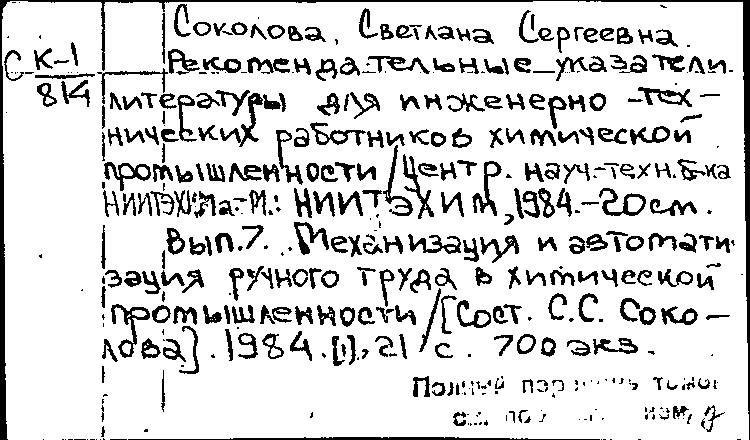 Соколова, Светлана Сергеевна.
С К-1
814
Рекомендательные указатели
литературы для инженерно-тех-
нических работников химической
промышленности / Центр. науч.-техн. б-ка
НИИТЭХИМа.-М.: НИИТЭХИМ, 1984.-20см.
Вып.7. Механизация и автомати
зация ручного труда в химической
промышленности / [Сост. С.С. Соко-
лова]. 1984. [1], 21 с. 700 экз.
Полный
см. по